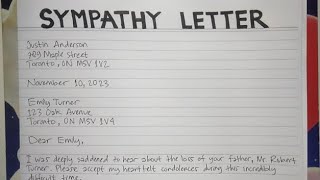 SYMPATHY LETTER
Justin Anderson
789 Maple Street
Toronto, ON M5V 1V2
November 10, 2023
Emily Turner
123 Oak Avenue
Toronto, ON M5V 1V4
Dear Emily,
I was deeply saddened to hear about the loss of your father, Mr Robert
Turner. Please accept my heartfelt condolences during this incredibly
difficult time.